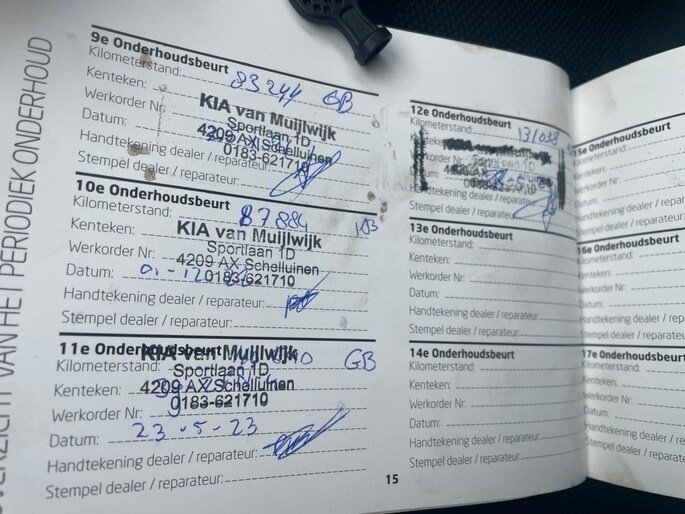 OVERZICHT VAN HET PERIODIEK ONDERHOUD
9e Onderhoudsbeurt
Kilometerstand: 83244 GB
Kenteken:
Werkorder Nr:
Datum:
Handtekening dealer / reparateur:
Stempel dealer / reparateur:
KIA van Muijlwijk
Sportlaan 1D
4209 AX Schelluinen
0183-621710
10e Onderhoudsbeurt
Kilometerstand: 87884
Kenteken:
Werkorder Nr:
Datum: 01-12
Handtekening dealer / reparateur:
Stempel dealer / reparateur:
KIA van Muijlwijk
Sportlaan 1D
4209 AX Schelluinen
0183-621710
11e Onderhoudsbeurt
Kilometerstand: GB
Kenteken:
Werkorder Nr:
Datum: 23-5-23
Handtekening dealer / reparateur:
Stempel dealer / reparateur:
KIA van Muijlwijk
Sportlaan 1D
4209 AX Schelluinen
0183-621710
15
12e Onderhoudsbeurt
Kilometerstand: 131038
Kenteken:
Werkorder Nr:
Datum:
Handtekening dealer / reparateur:
Stempel dealer / reparateur:
13e Onderhoudsbeurt
Kilometerstand:
Kenteken:
Werkorder Nr:
Datum:
Handtekening dealer / reparateur:
Stempel dealer / reparateur:
14e Onderhoudsbeurt
Kilometerstand:
Kenteken:
Werkorder Nr:
Datum:
Handtekening dealer / reparateur:
Stempel dealer / reparateur:
15e Onderhoudsbeurt
Kilometerstand:
Kenteken:
Werkorder Nr:
Datum:
Handtekening dealer / reparateur:
Stempel dealer / reparateur:
16e Onderhoudsbeurt
Kilometerstand:
Kenteken:
Werkorder Nr:
Datum:
Handtekening dealer / reparateur:
Stempel dealer / reparateur:
17e Onderhoudsbeurt
Kilometerstand:
Kenteken:
Werkorder Nr:
Datum:
Handtekening dealer / reparateur:
Stempel dealer / reparateur: